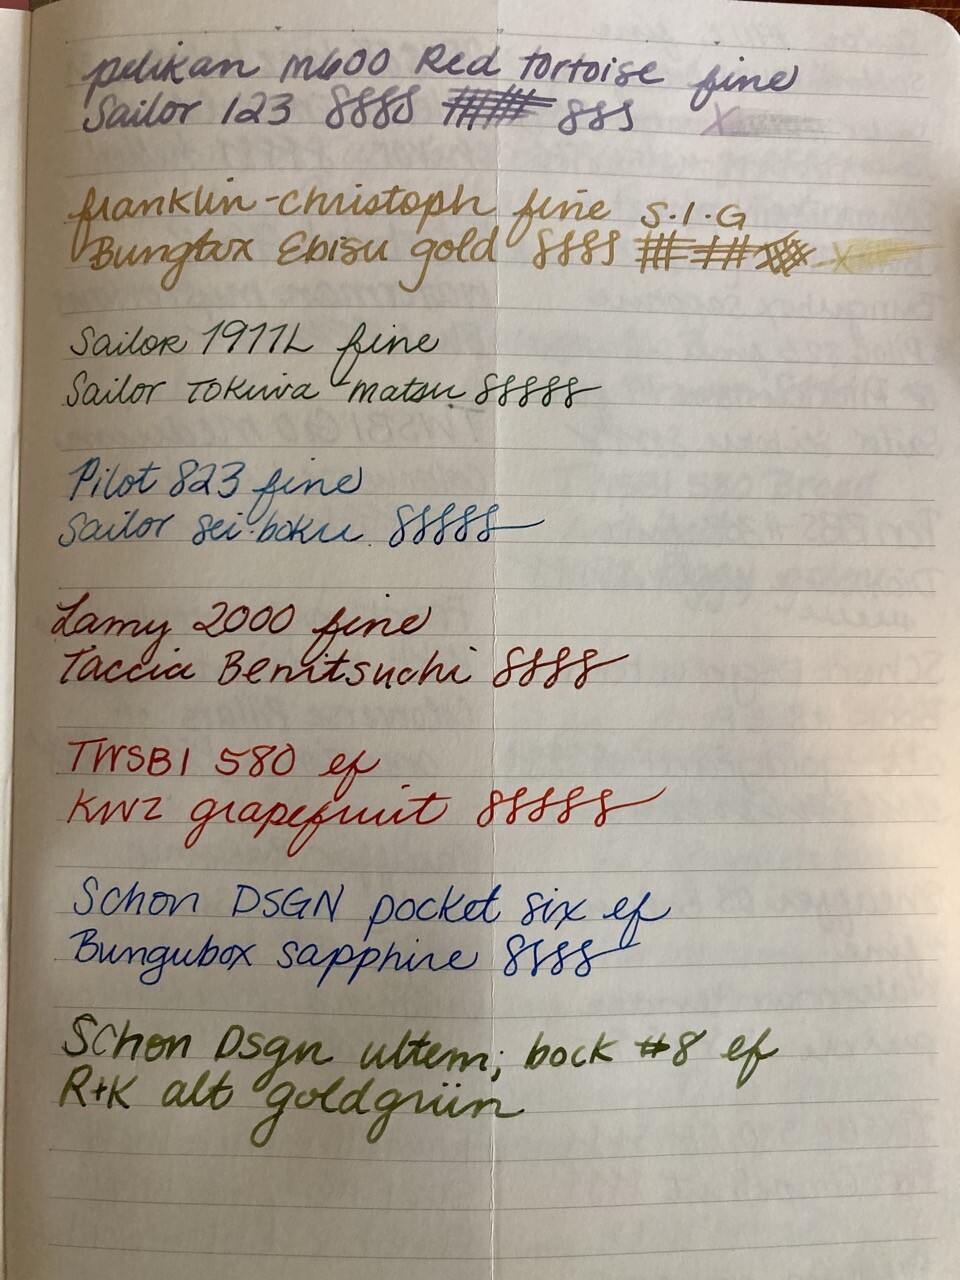 pelikan m600 Red tortoise fine
Sailor 123 8888 888 X
franklin-christoph fine S.I.G
Bungbox Ebisu gold 8888 X
Sailor 1911L fine
Sailor Tokiwa matsu 88888
Pilot 823 fine
Sailor sei-boku 88888
Lamy 2000 fine
Taccia Benitsuchi 8888
TWSBI 580 ef
KWZ grapefruit 88888
Schon DSGN pocket six ef
Bungubox sapphire 8888
Schon Dsgn ultem; bock #8 ef
R+K alt goldgrün